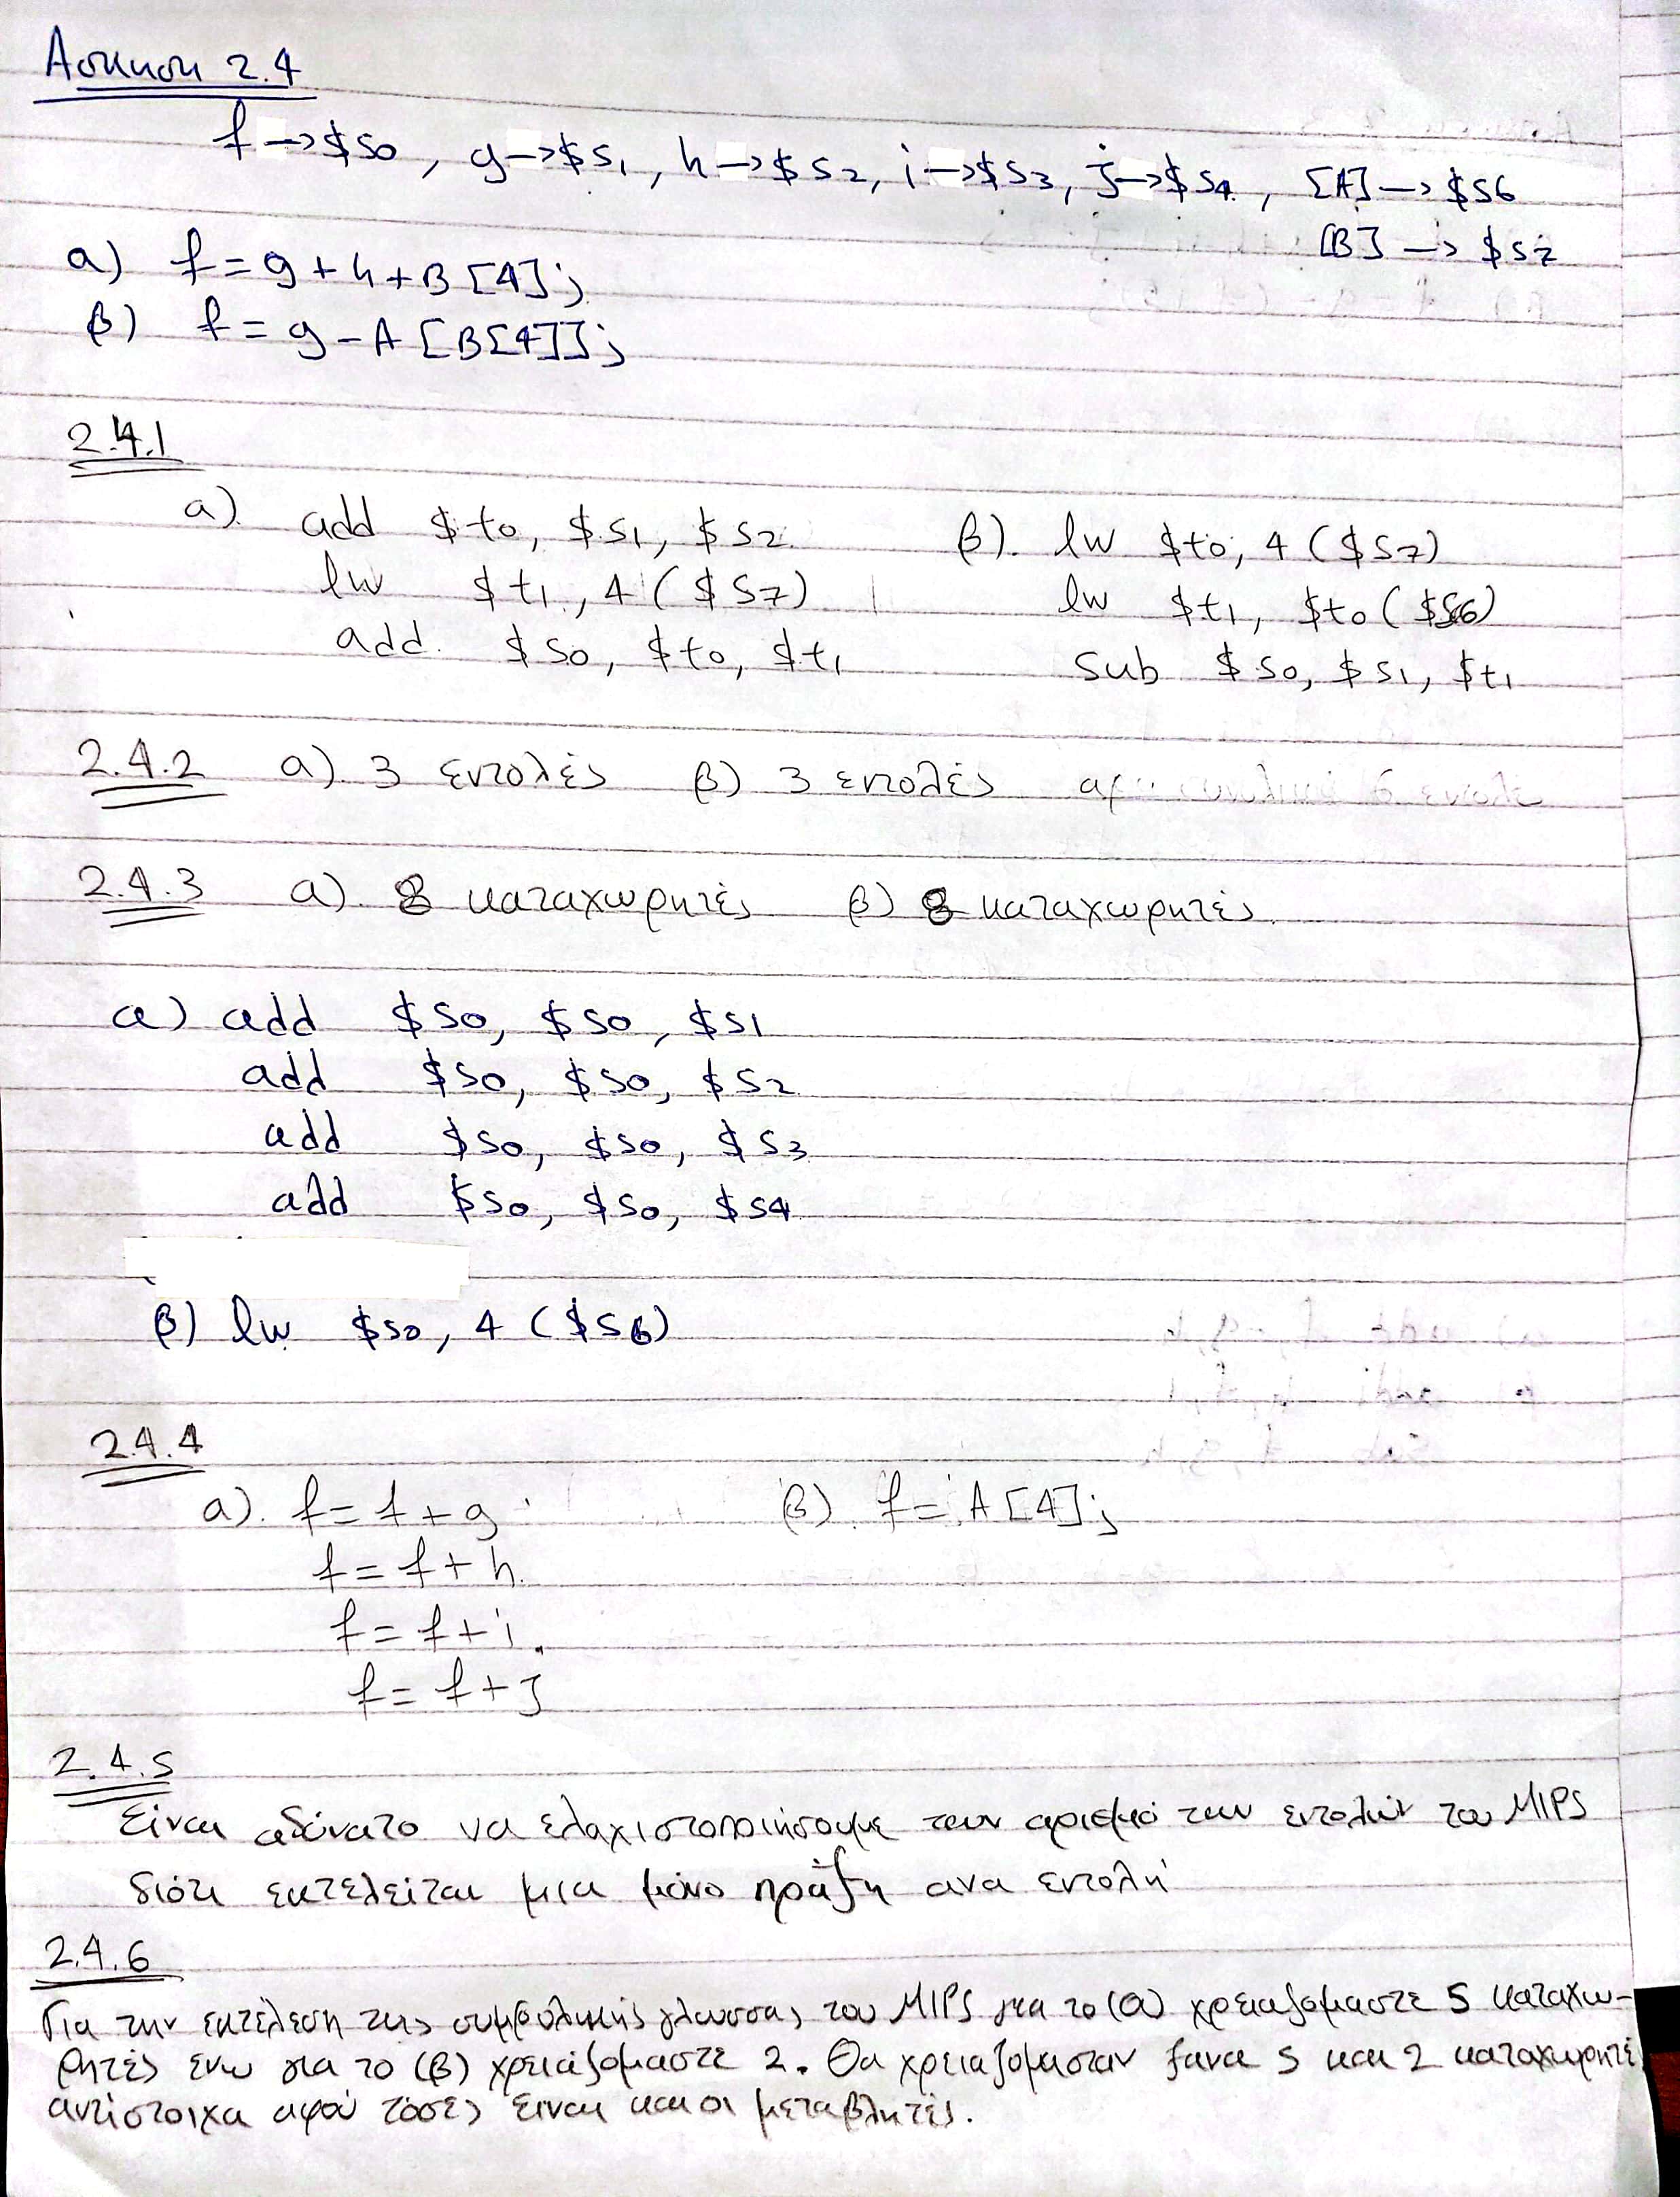 Άσκηση 2.4
f → $s0, g → $s1, h → $s2, i → $s3, j → $s4, [A] → $s6
[B] → $s7
α) f = g + h + B[4];
β) f = g - A[B[4]];
2.4.1
α). add $t0, $s1, $s2
lw $t1, 4($s7)
add $s0, $t0, $t1
β). lw $t0, 4($s7)
lw $t1, $t0($s6)
sub $s0, $s1, $t1
2.4.2 α). 3 εντολές β) 3 εντολές
2.4.3 α). 8 καταχωρητές β) 8 καταχωρητές.
α) add $s0, $s0, $s1
add $s0, $s0, $s2
add $s0, $s0, $s3
add $s0, $s0, $s4
β) lw $s0, 4($s6)
2.4.4
α). f = f + g
f = f + h
f = f + i
f = f + j
β). f = A[4];
2.4.5
Είναι αδύνατο να ελαχιστοποιήσουμε των αριθμό των εντολών του MIPS
διότι εκτελείται μια μόνο πράξη ανα εντολή
2.4.6
Για την εκτέλεση της συμβολικής γλωσσας του MIPS για το (α) χρειαζομαστε 5 καταχω-
ρητές ενω για το (β) χρειάζομαστε 2. Θα χρειαζομασταν ξανα 5 και 2 καταχωρητέ
αντίστοιχα αφού τόσες είναι και οι μεταβλητές.